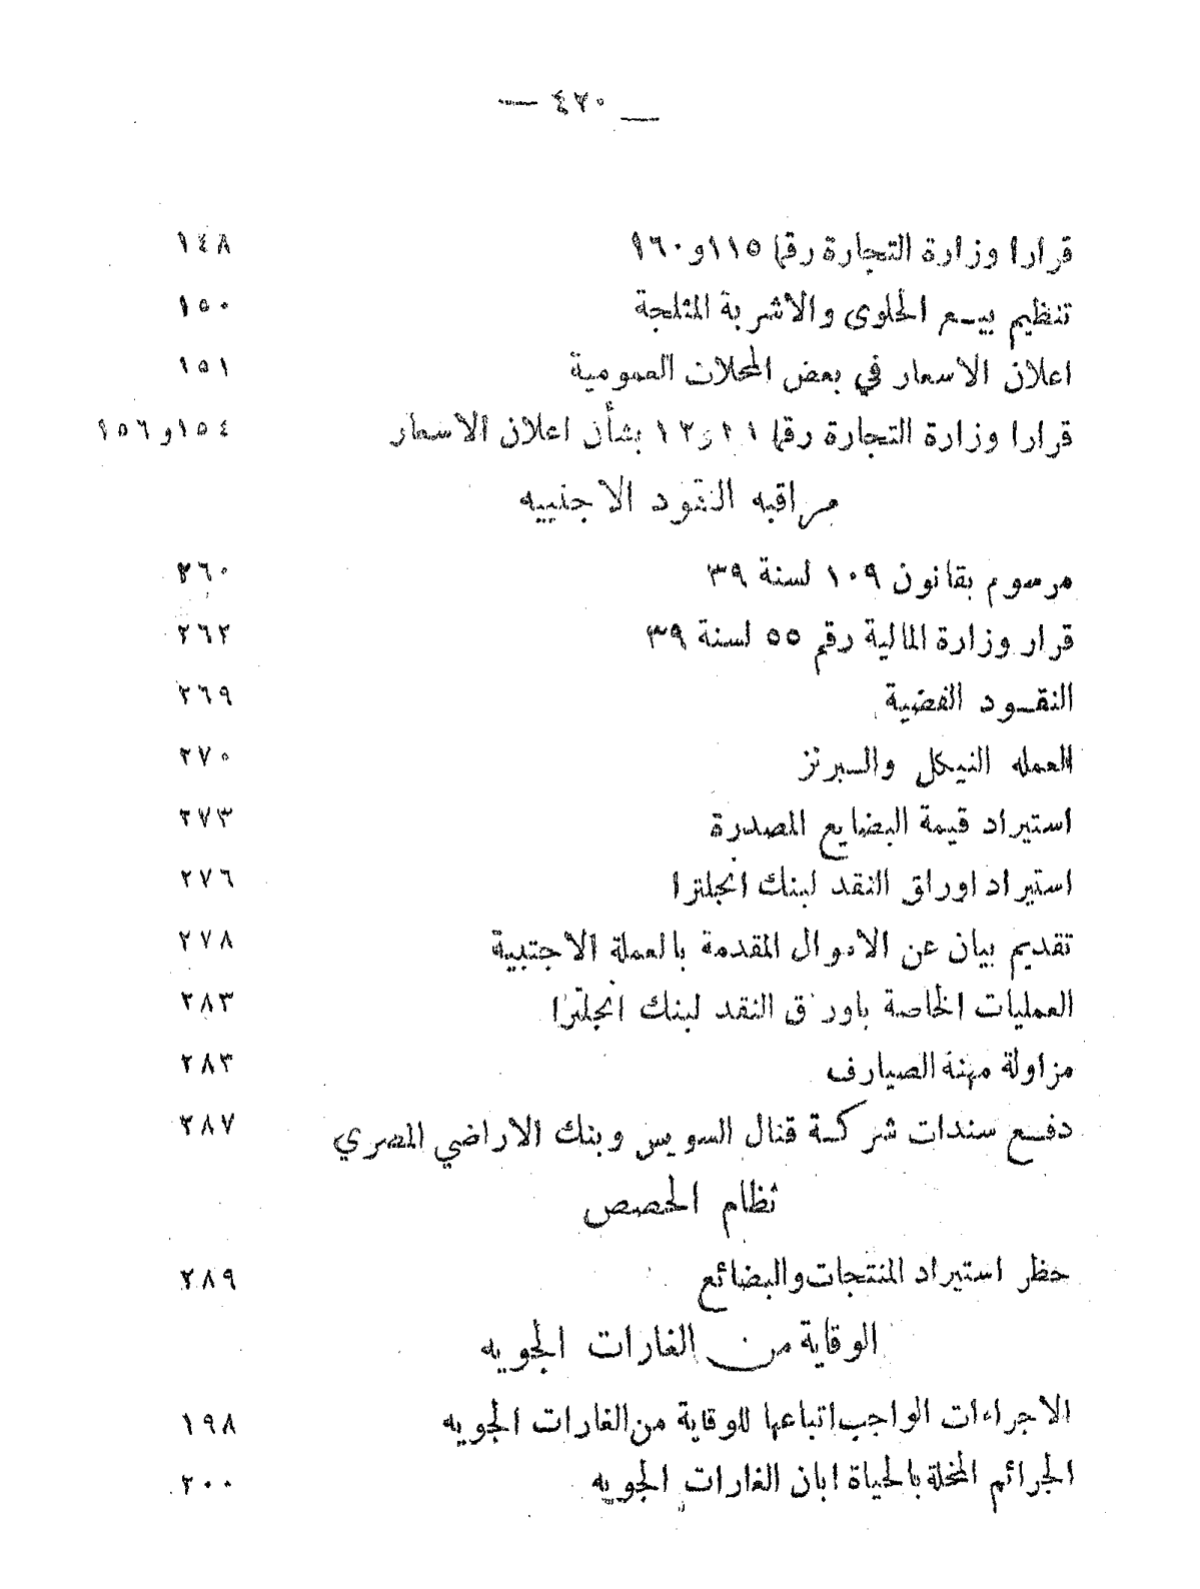 — ٤٢٠ —
قرارا وزارة التجارة رقما ١١٥ و١٦٠ ١٤٨
تنظيم بيع الحلوى والاشربة المثلجة ١٥٠
اعلان الاسعار في بعض المحلات العمومية ١٥١
قرارا وزارة التجارة رقما بشأن اعلان الاسعار ١٥٤ و١٥٦
مراقبه النقود الاجنبيه
مرسوم بقانون ١٠٩ لسنة ٣٩ ٢٦٠
قرار وزارة المالية رقم ٥٥ لسنة ٣٩ ٢٦٢
النقود الفضية ٢٦٩
العمله النيكل والسبرنز ٢٧٠
استيراد قيمة البضايع المصدرة ٢٧٣
استيراد اوراق النقد لبنك انجلترا ٢٧٦
تقديم بيان عن الاموال المقدمة بالعملة الاجتبية ٢٧٨
العمليات الخاصة باورق النقد لبنك انجلترا ٢٨٣
مزاولة مهنة الصيارف ٢٨٣
دفع سندات شركة قنال السويس وبنك الاراضي المصري ٢٨٧
نظام الحصص
حظر استيراد المنتجات والبضائع ٢٨٩
الوقاية من الغارات الجويه
الاجراءات الواجب اتباعها للوقاية من الغارات الجويه ١٩٨
الجرائم المخلة بالحياة ابان الغارات الجويه ٢٠٠